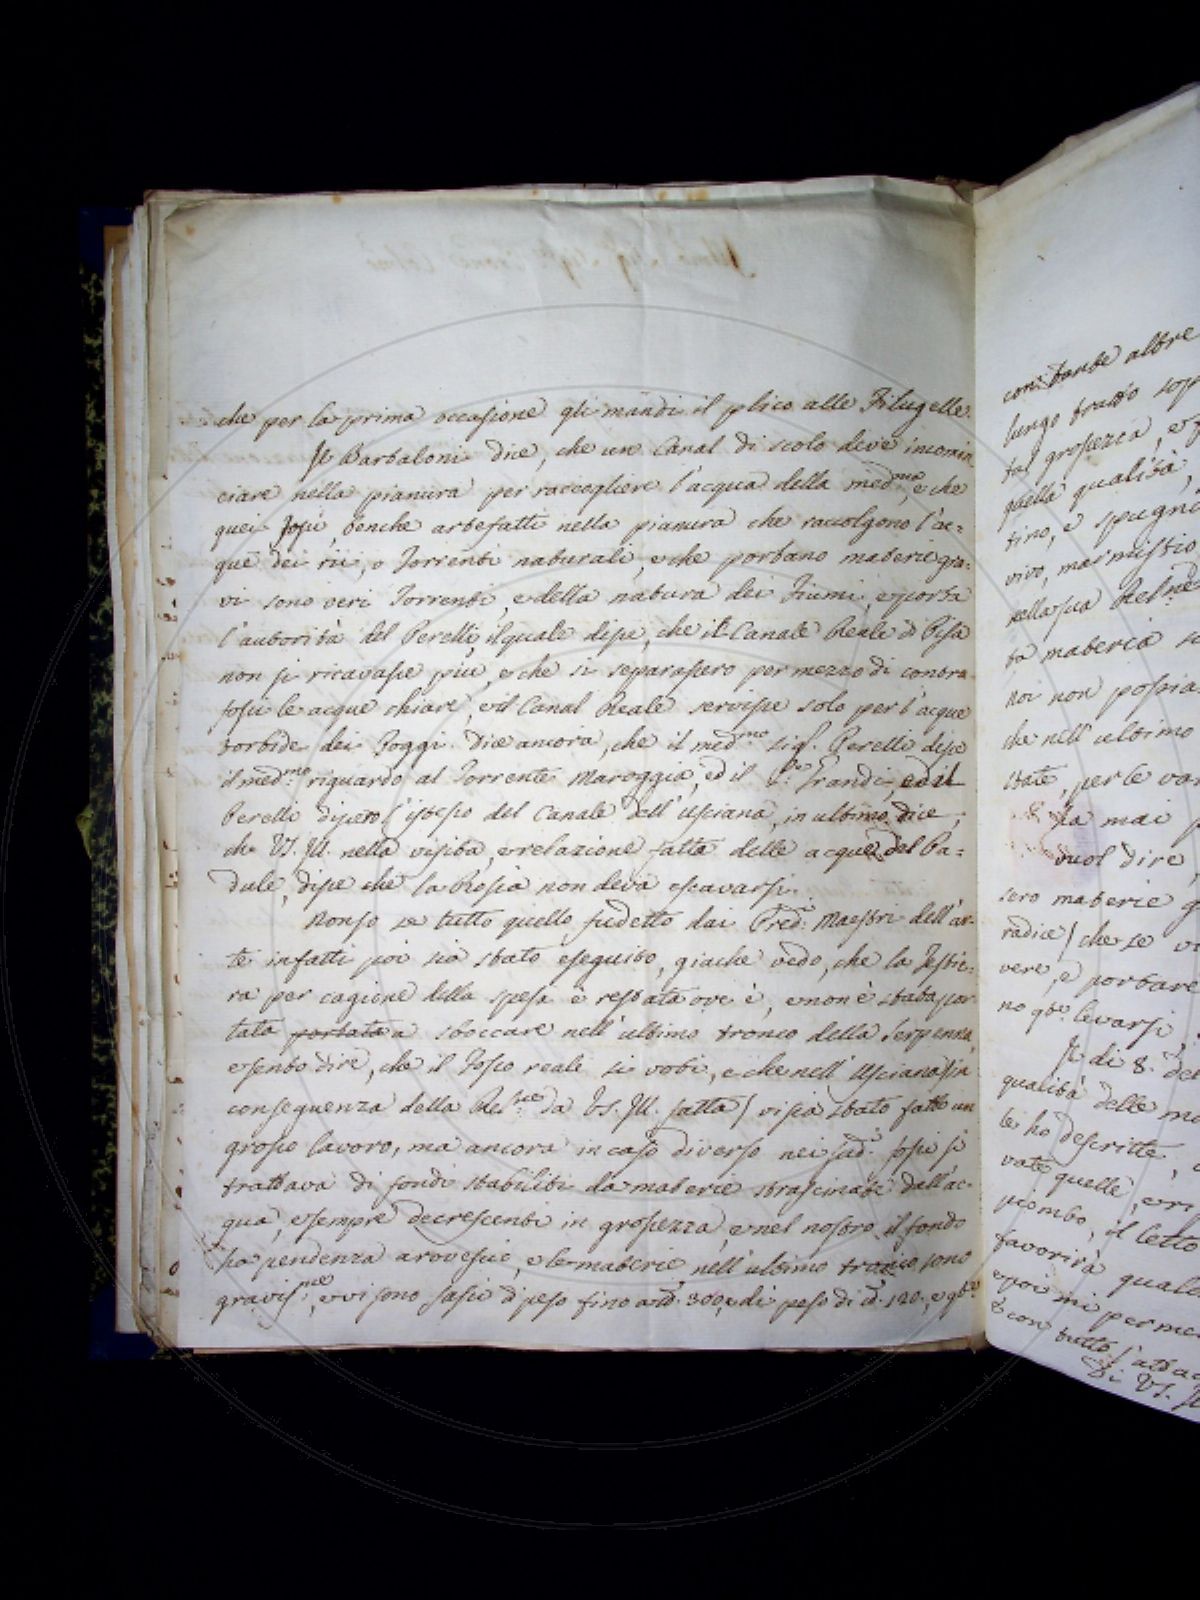 che per la prima occasione gli mandi il plico alle Filugelle.
Il Bartaloni dice, che un Canal di scolo deve incomin
ciare nella pianura per raccogliere l'acqua della med.ma, e che
quei Fossi, benche artefatti nella pianura che raccolgono l'ac=
que dei rii, o Torrenti naturali, e che portano materie gra=
vi sono veri Torrenti, e della natura dei Fiumi, e porta
l'autorità del Perelli, il quale disse, che il Canale Reale di Pisa
non si ricavasse piu, e che si separassero per mezzo di contra
fossi le acque chiare, e il Canal Reale servisse solo per l'acque
torbide dei Poggi. Dice ancora, che il med.mo Sig.r Perelli disse
il med.mo riguardo al Torrente Maroggia, ed il P.re Grandi, ed il
Perelli dissero l'istesso del Canale dell'Usciana, in ultimo dice,
che VS. Ill. nella visita, e relazione fatta delle acque del Pa=
dule, disse che la Rosia non deva escavarsi.
Non so se tutto quello sudetto dai Pred.i Maestri dell'ar=
te infatti poi sia stato eseguito, giache vedo, che la Testie=
ra per cagione della spesa è restata ove è, e non è stata por
tata portata a sboccare nell'ultimo tronco della Serpenna,
e sento dire, che il Fosso reale si voti, e che nell'Usciana (in
conseguenza della Rel.ne da VS. Ill. fatta) vi sia stato fatto un
grosso lavoro, ma ancora in caso diverso nei sud.i fossi si
trattava di fondi stabiliti da materie strascinate dall'ac=
qua, e sempre decrescenti in grossezza, e nel nostro il fondo
ha pendenza a rovescio, e le materie nell'ultimo tronco sono
gravis.me, e vi sono sassi di peso fino a 300, e di peso di 120., e
con
altre
lungo tratto
grossezza,
quella qualità,
tino, e
vivo,
nella sua
materia
noi non
che nell'ultimo
state, per le
mai
vuol dire,
sero materie
radice) che se
vere, e portare
no levarsi,
Il di 8.
qualità delle
le ho descritte,
vate quelle,
piombo, il letto
favorirà
e poi mi
e con tutto
Di VS.